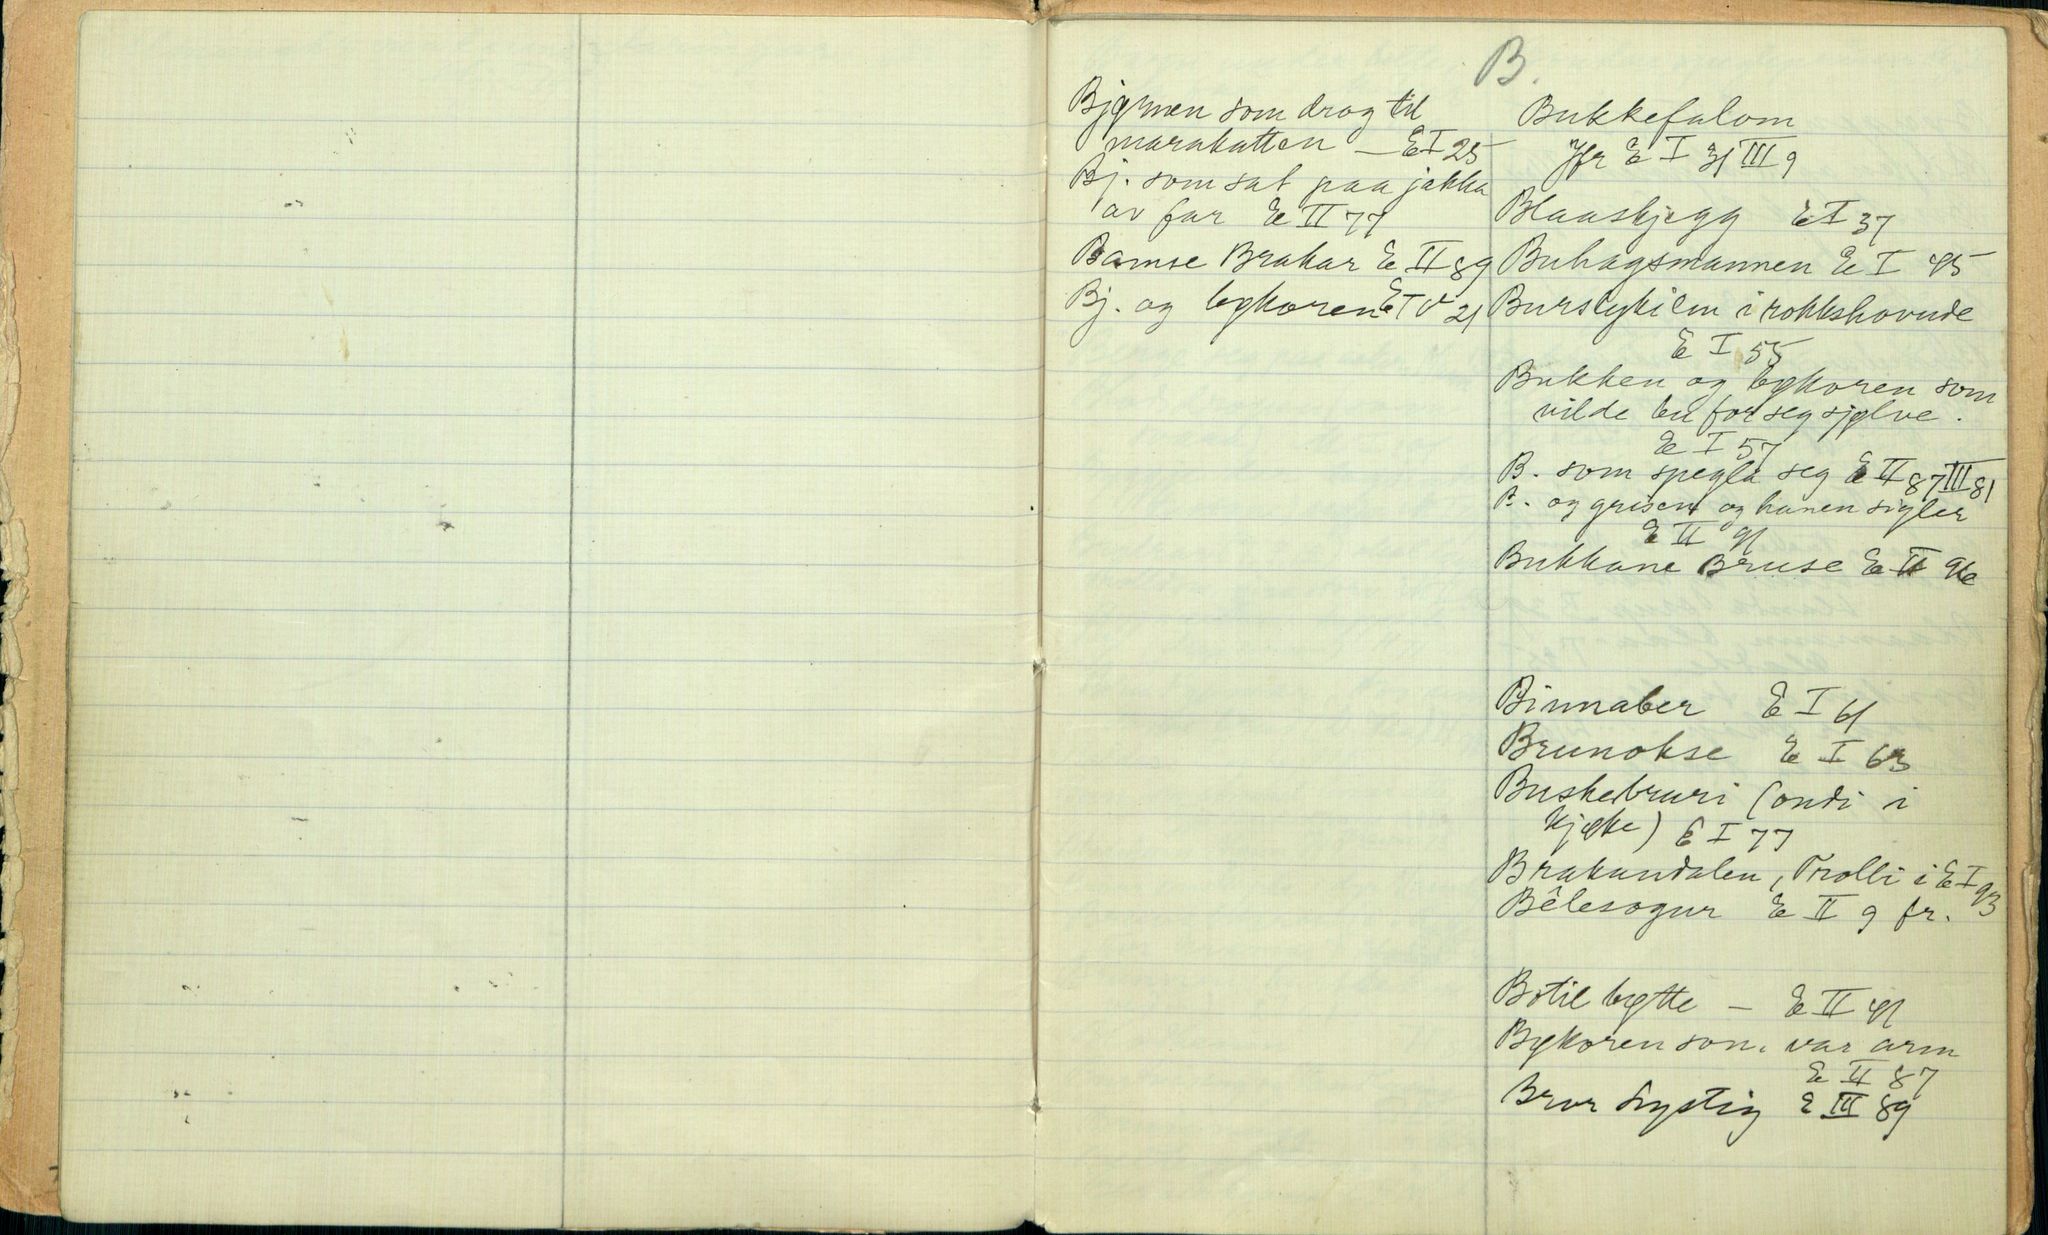 B.
Bjørnen som drog til
marakatten — E I 25
Bj. som sat paa jakka
av far E II 77
Bamse Brakar E II 89
Bj. og bykoren E IV 21
Bukkefalom
Jfr E I 31 III 9
Blaaskjegg E I 37
Buhagsmannen E I 45
i rokkshovude
E I 55
Bukken og bykoren som
vilde bu for seg sjølve.
E I 57
B. som spegla seg E II 87 III 81
B. og grisen og hanen sigler
E II 91
Bukkane Bruse E II 96
Binnaber E I 61
Brunokse E I 63
Buskebruri (ondi i
kjøke) E I 77
Brakandalen, Trolli i E I 93
Bêlesogur E II 9 fr.
Botil bytte — E II 41
Bykoren som var arm
E II 87
Bror Lystig E III 89